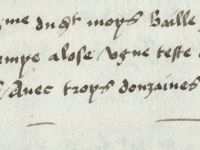 me dust moys Baille
alose ugne teste
Avec troys douzaines